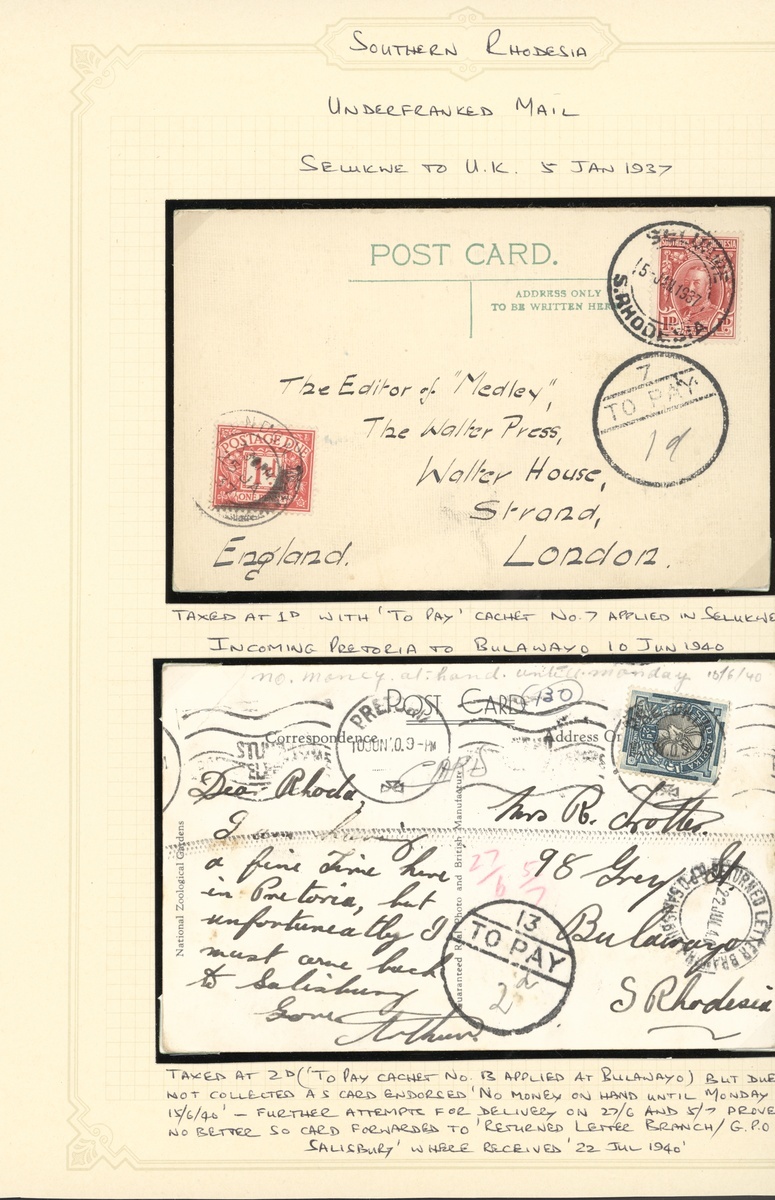 SOUTHERN RHODESIA
UNDERFRANKED MAIL
SELUKWE TO U.K. 5 JAN 1937
POST CARD.
ADDRESS ONLY
TO BE WRITTEN HERE
SELUKWE
15-JAN 1937
S. RHODESIA
1D
7
TO PAY
1d
The Editor of "Medley",
The Walter Press,
Walter House,
Strand,
London.
England.
POSTAGE DUE
1D
TAXED AT 1D WITH 'TO PAY' CACHET NO. 7 APPLIED IN SELUKWE
INCOMING PRETORIA TO BULAWAYO 10 JUN 1940
no. money. at. hand. until. monday 15/6/40
POST CARD
130
Correspondence
Address On
PRETORIA
10 JUN 40. 9-PM
CARD
Dear Rhoda,
I am having
a fine time here
in Pretoria, but
unfortunately I
must come back
to Salisbury
Arthur.
National Zoological Gardens
Guaranteed Real Photo and British Manufacture
Mrs R. Trotter.
98 Grey St
Bulawayo
S Rhodesia
27/6 5/7
13
TO PAY
2d
RETURNED LETTER BRANCH
22 JUL 4
TAXED AT 2D ('TO PAY CACHET NO. 13 APPLIED AT BULAWAYO) BUT DUE
NOT COLLECTED AS CARD ENDORSED 'NO MONEY ON HAND UNTIL MONDAY
15/6/40' – FURTHER ATTEMPTS FOR DELIVERY ON 27/6 AND 5/7 PROVE
NO BETTER SO CARD FORWARDED TO 'RETURNED LETTER BRANCH/G.P.O
SALISBURY' WHERE RECEIVED '22 JUL 1940'